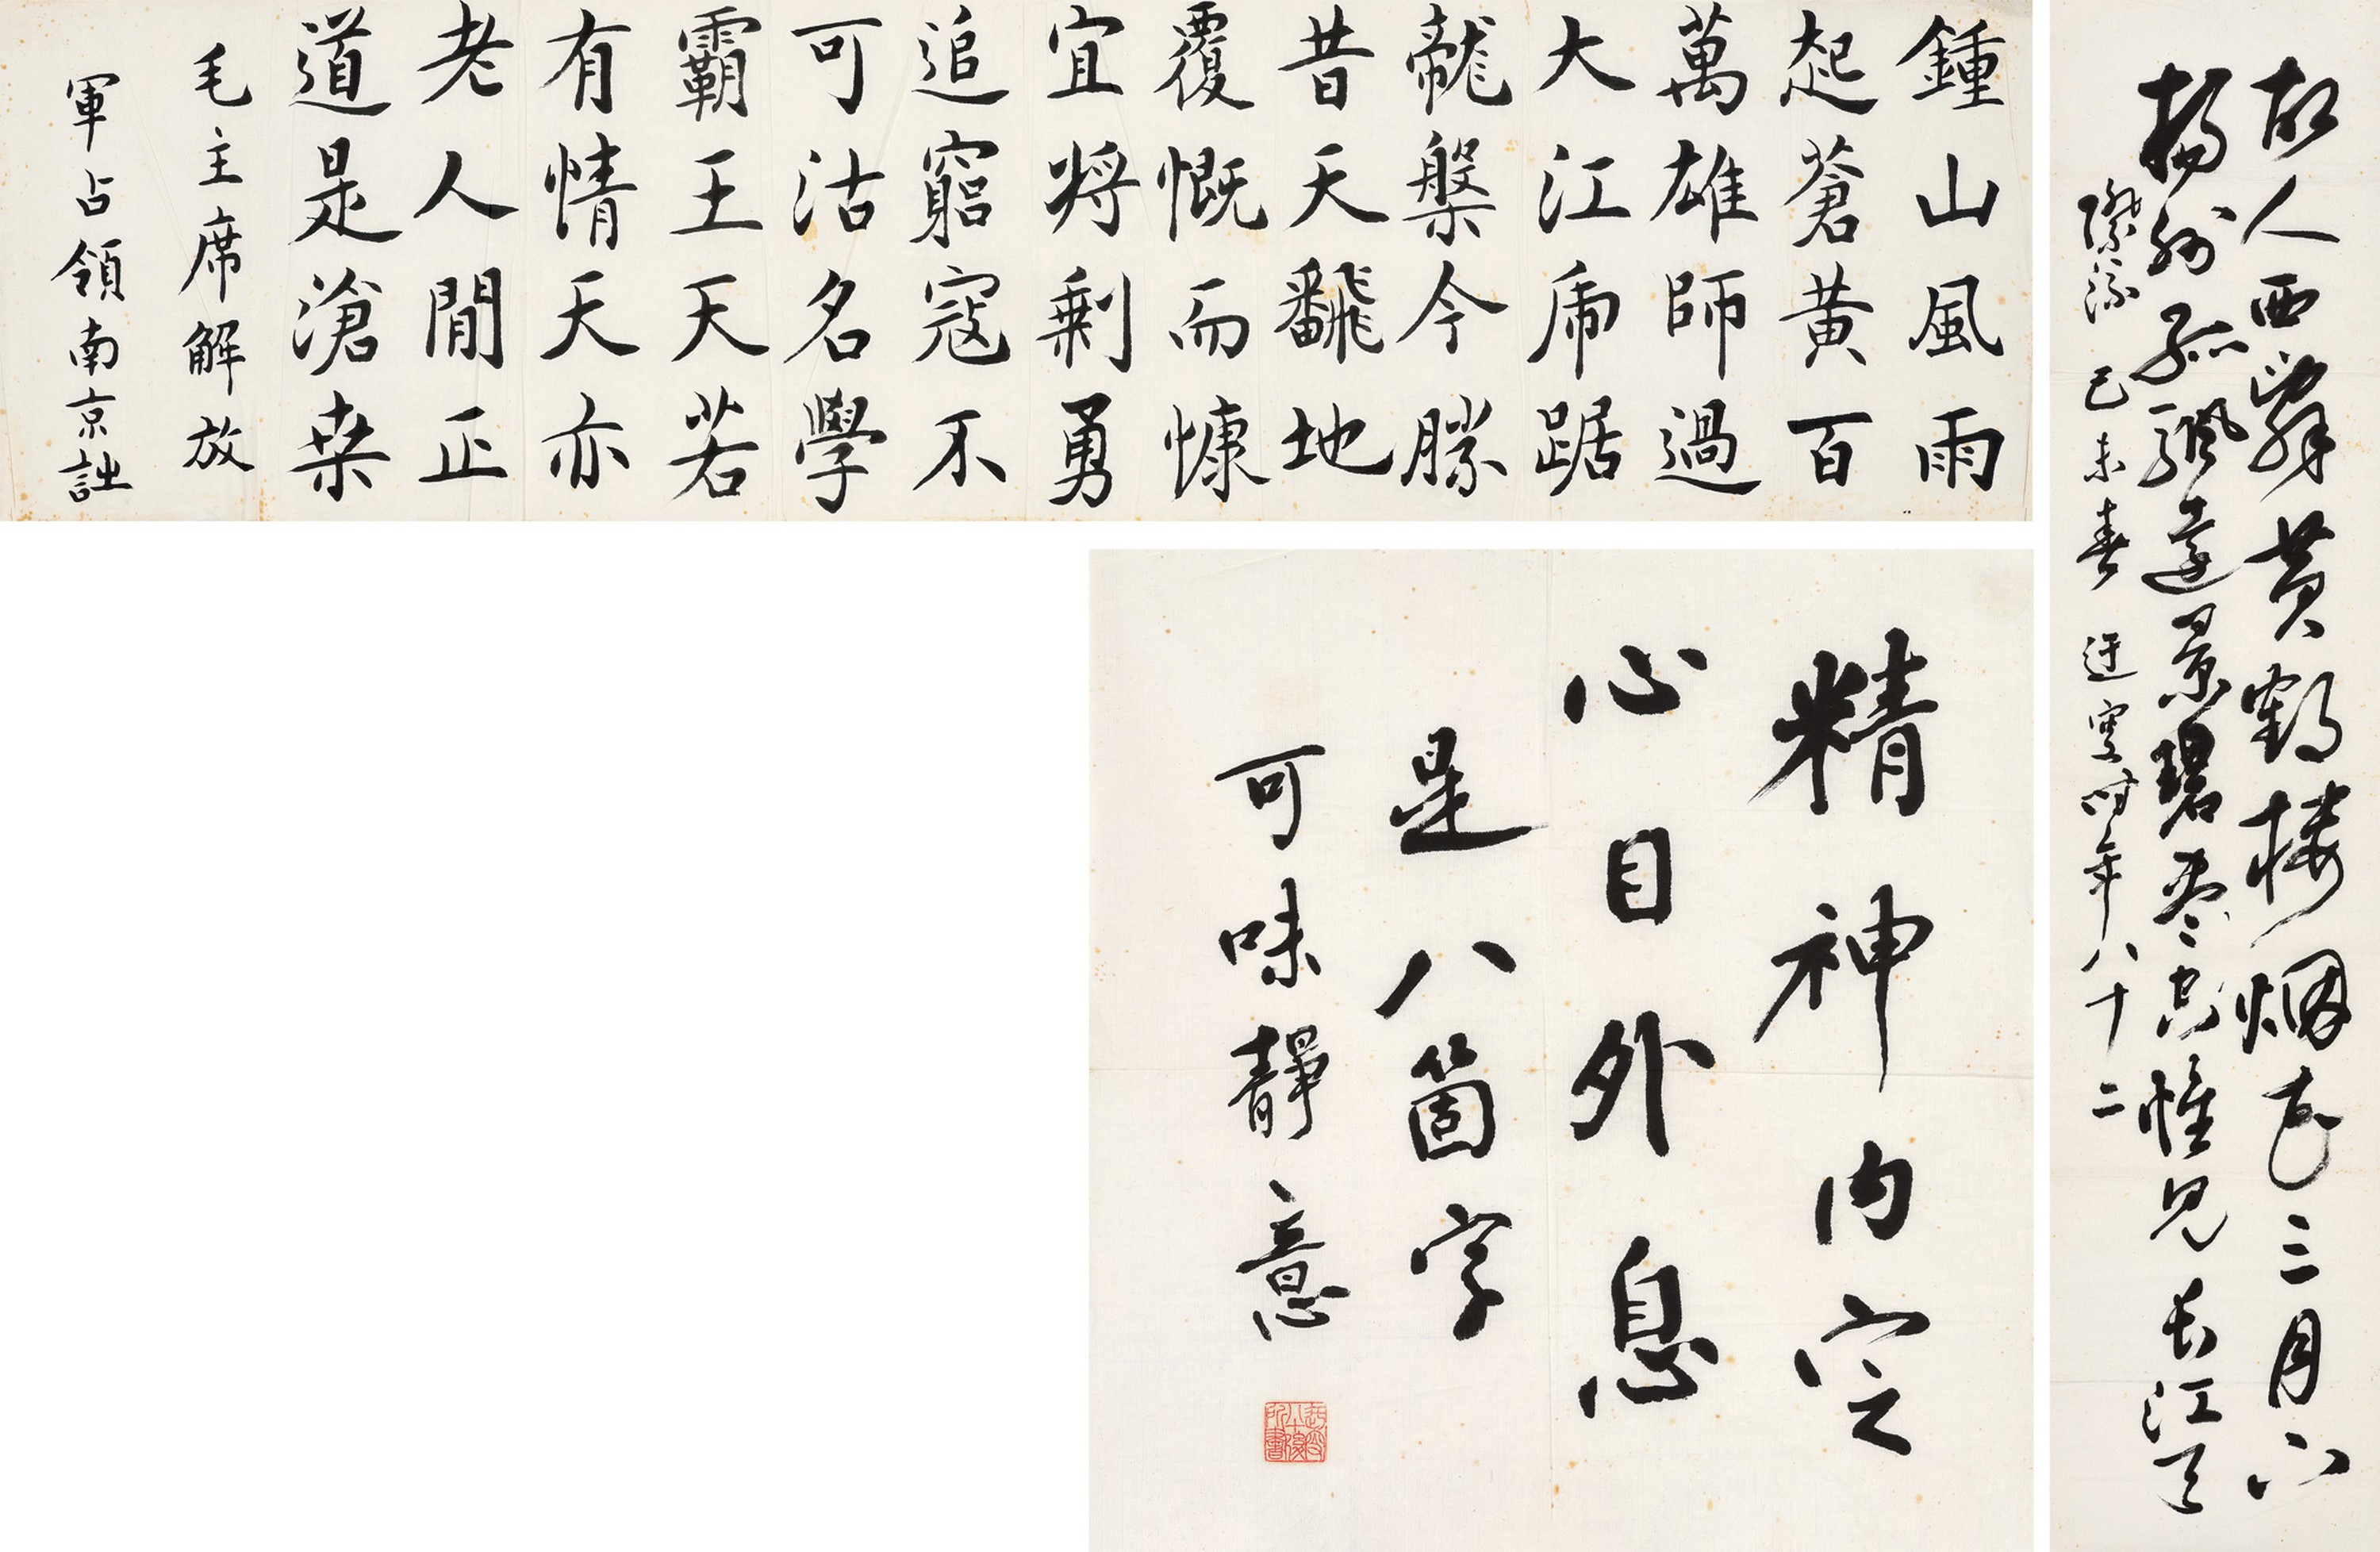 故人西辭黄鶴楼烟花三月下
揚州孤帆遠景碧尽空惟見長江天
際流 己未春 迂叟时年八十二
鍾山風雨
起蒼黃百
萬雄師過
大江虎踞
龍槃今勝
昔天飜地
覆慨而慷
宜将剩勇
追窮寇不
可沽名學
霸王天若
有情天亦
老人閒正
道是滄桒
毛主席解放
軍占領南京詩
精神内定
心目外息
是八箇字
可味靜意